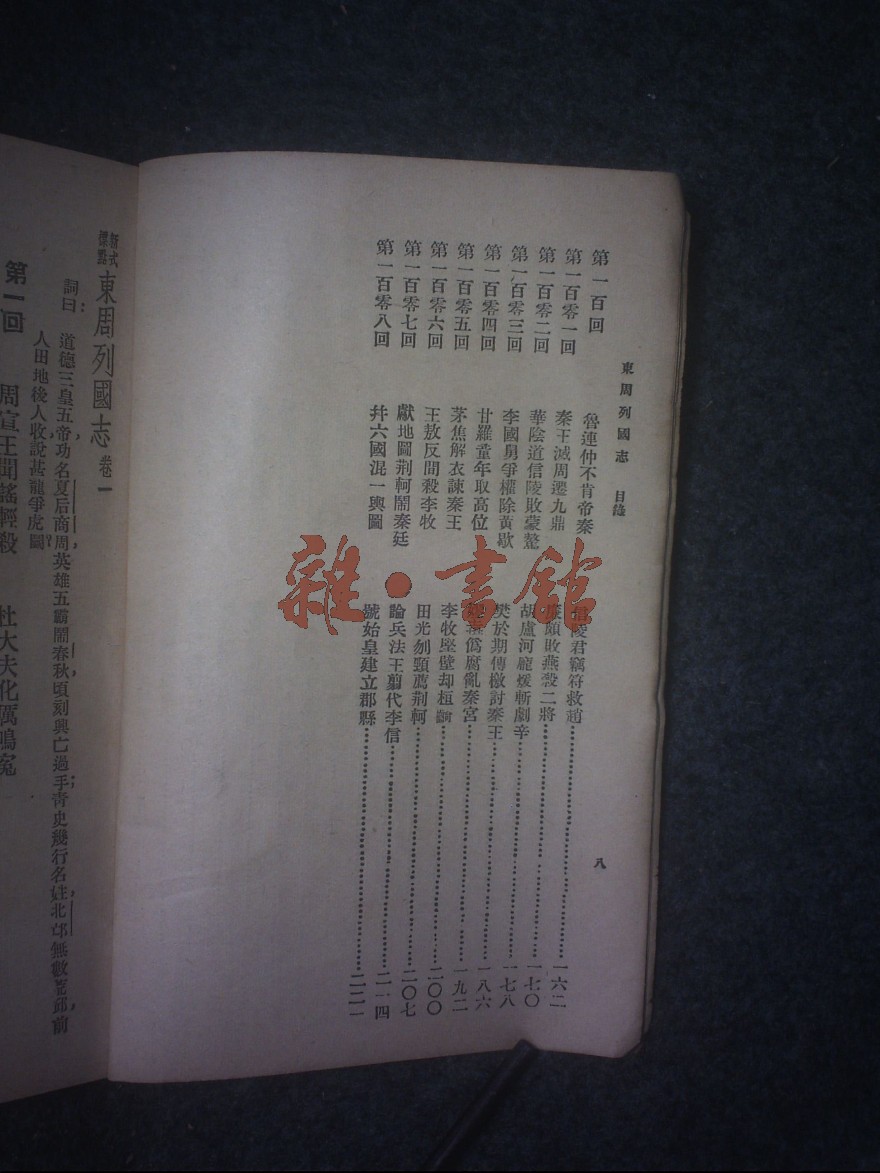 東周列國志　目錄
八
第一百回　魯連仲不肯帝秦　信陵君竊符救趙……一六二
第一百零一回　秦王滅周遷九鼎　廉頗敗燕殺二將……一七〇
第一百零二回　華陰道信陵敗蒙驁　胡盧河龐煖斬劇辛……一七八
第一百零三回　李國舅爭權除黃歇　樊於期傳檄討秦王……一八六
第一百零四回　甘羅童年取高位　嫪毐偽腐亂秦宮……一九二
第一百零五回　茅焦解衣諫秦王　李牧堅壁却桓齮……二〇〇
第一百零六回　王敖反間殺李牧　田光刎頸薦荆軻……二〇七
第一百零七回　獻地圖荆軻鬧秦廷　論兵法王翦代李信……二一四
第一百零八回　幷六國混一輿圖　號始皇建立郡縣……二二一
雜·書館
新式標點　東周列國志　卷一
詞曰：道德三皇五帝，功名夏后商周，英雄五霸鬧春秋，頃刻興亡過手；青史幾行名姓，北邙無數荒邱，前
人田地後人收，說甚龍爭虎鬬。
第一回　周宣王聞謠輕殺　杜大夫化厲鳴冤